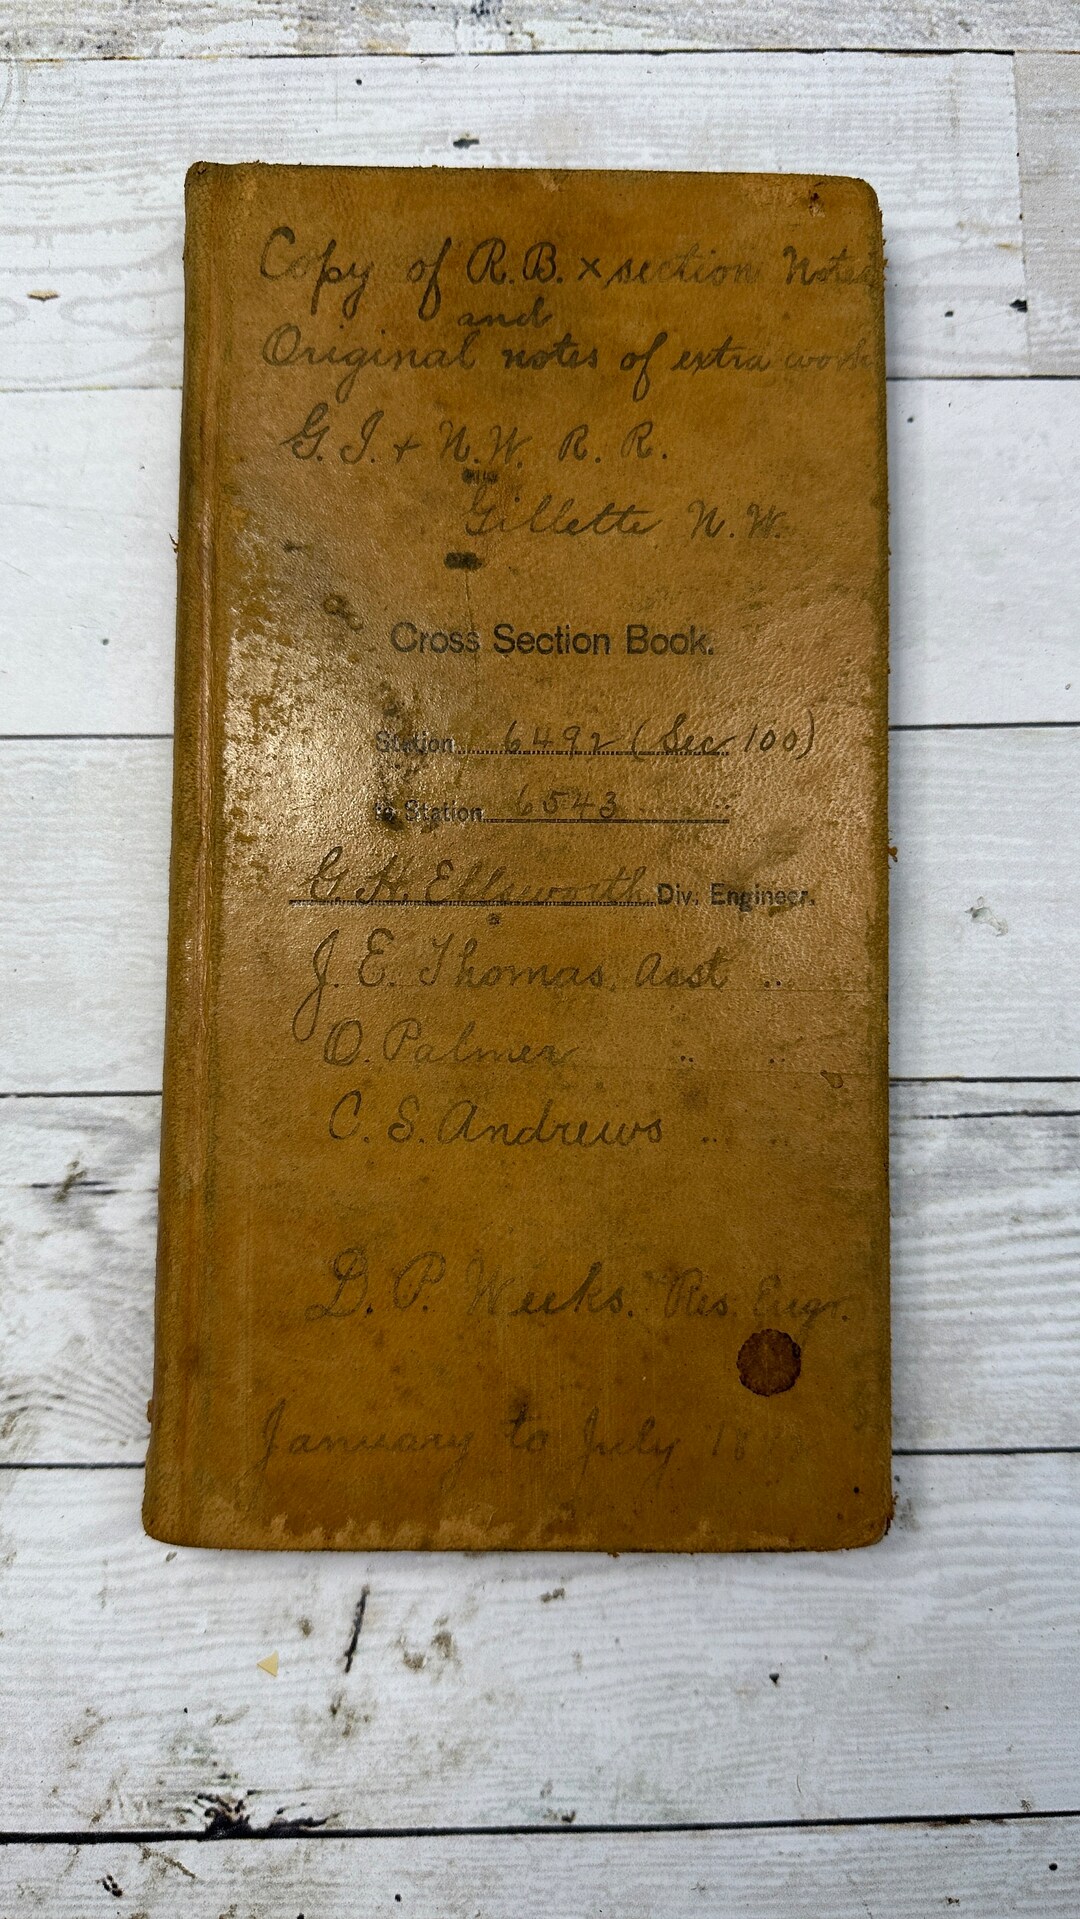 Copy of R.B. x section Notes
and
Original notes of extra work
G. I. + N.W. R. R.
Gillette N.W.
Cross Section Book.
Station 6492 (Sec 100)
to Station 6543
G. H. Ellsworth Div. Engineer.
J. E. Thomas, Asst ..
O. Palmer .. ..
C. S. Andrews ..
D. P. Weeks. Res. Engr.
January to July